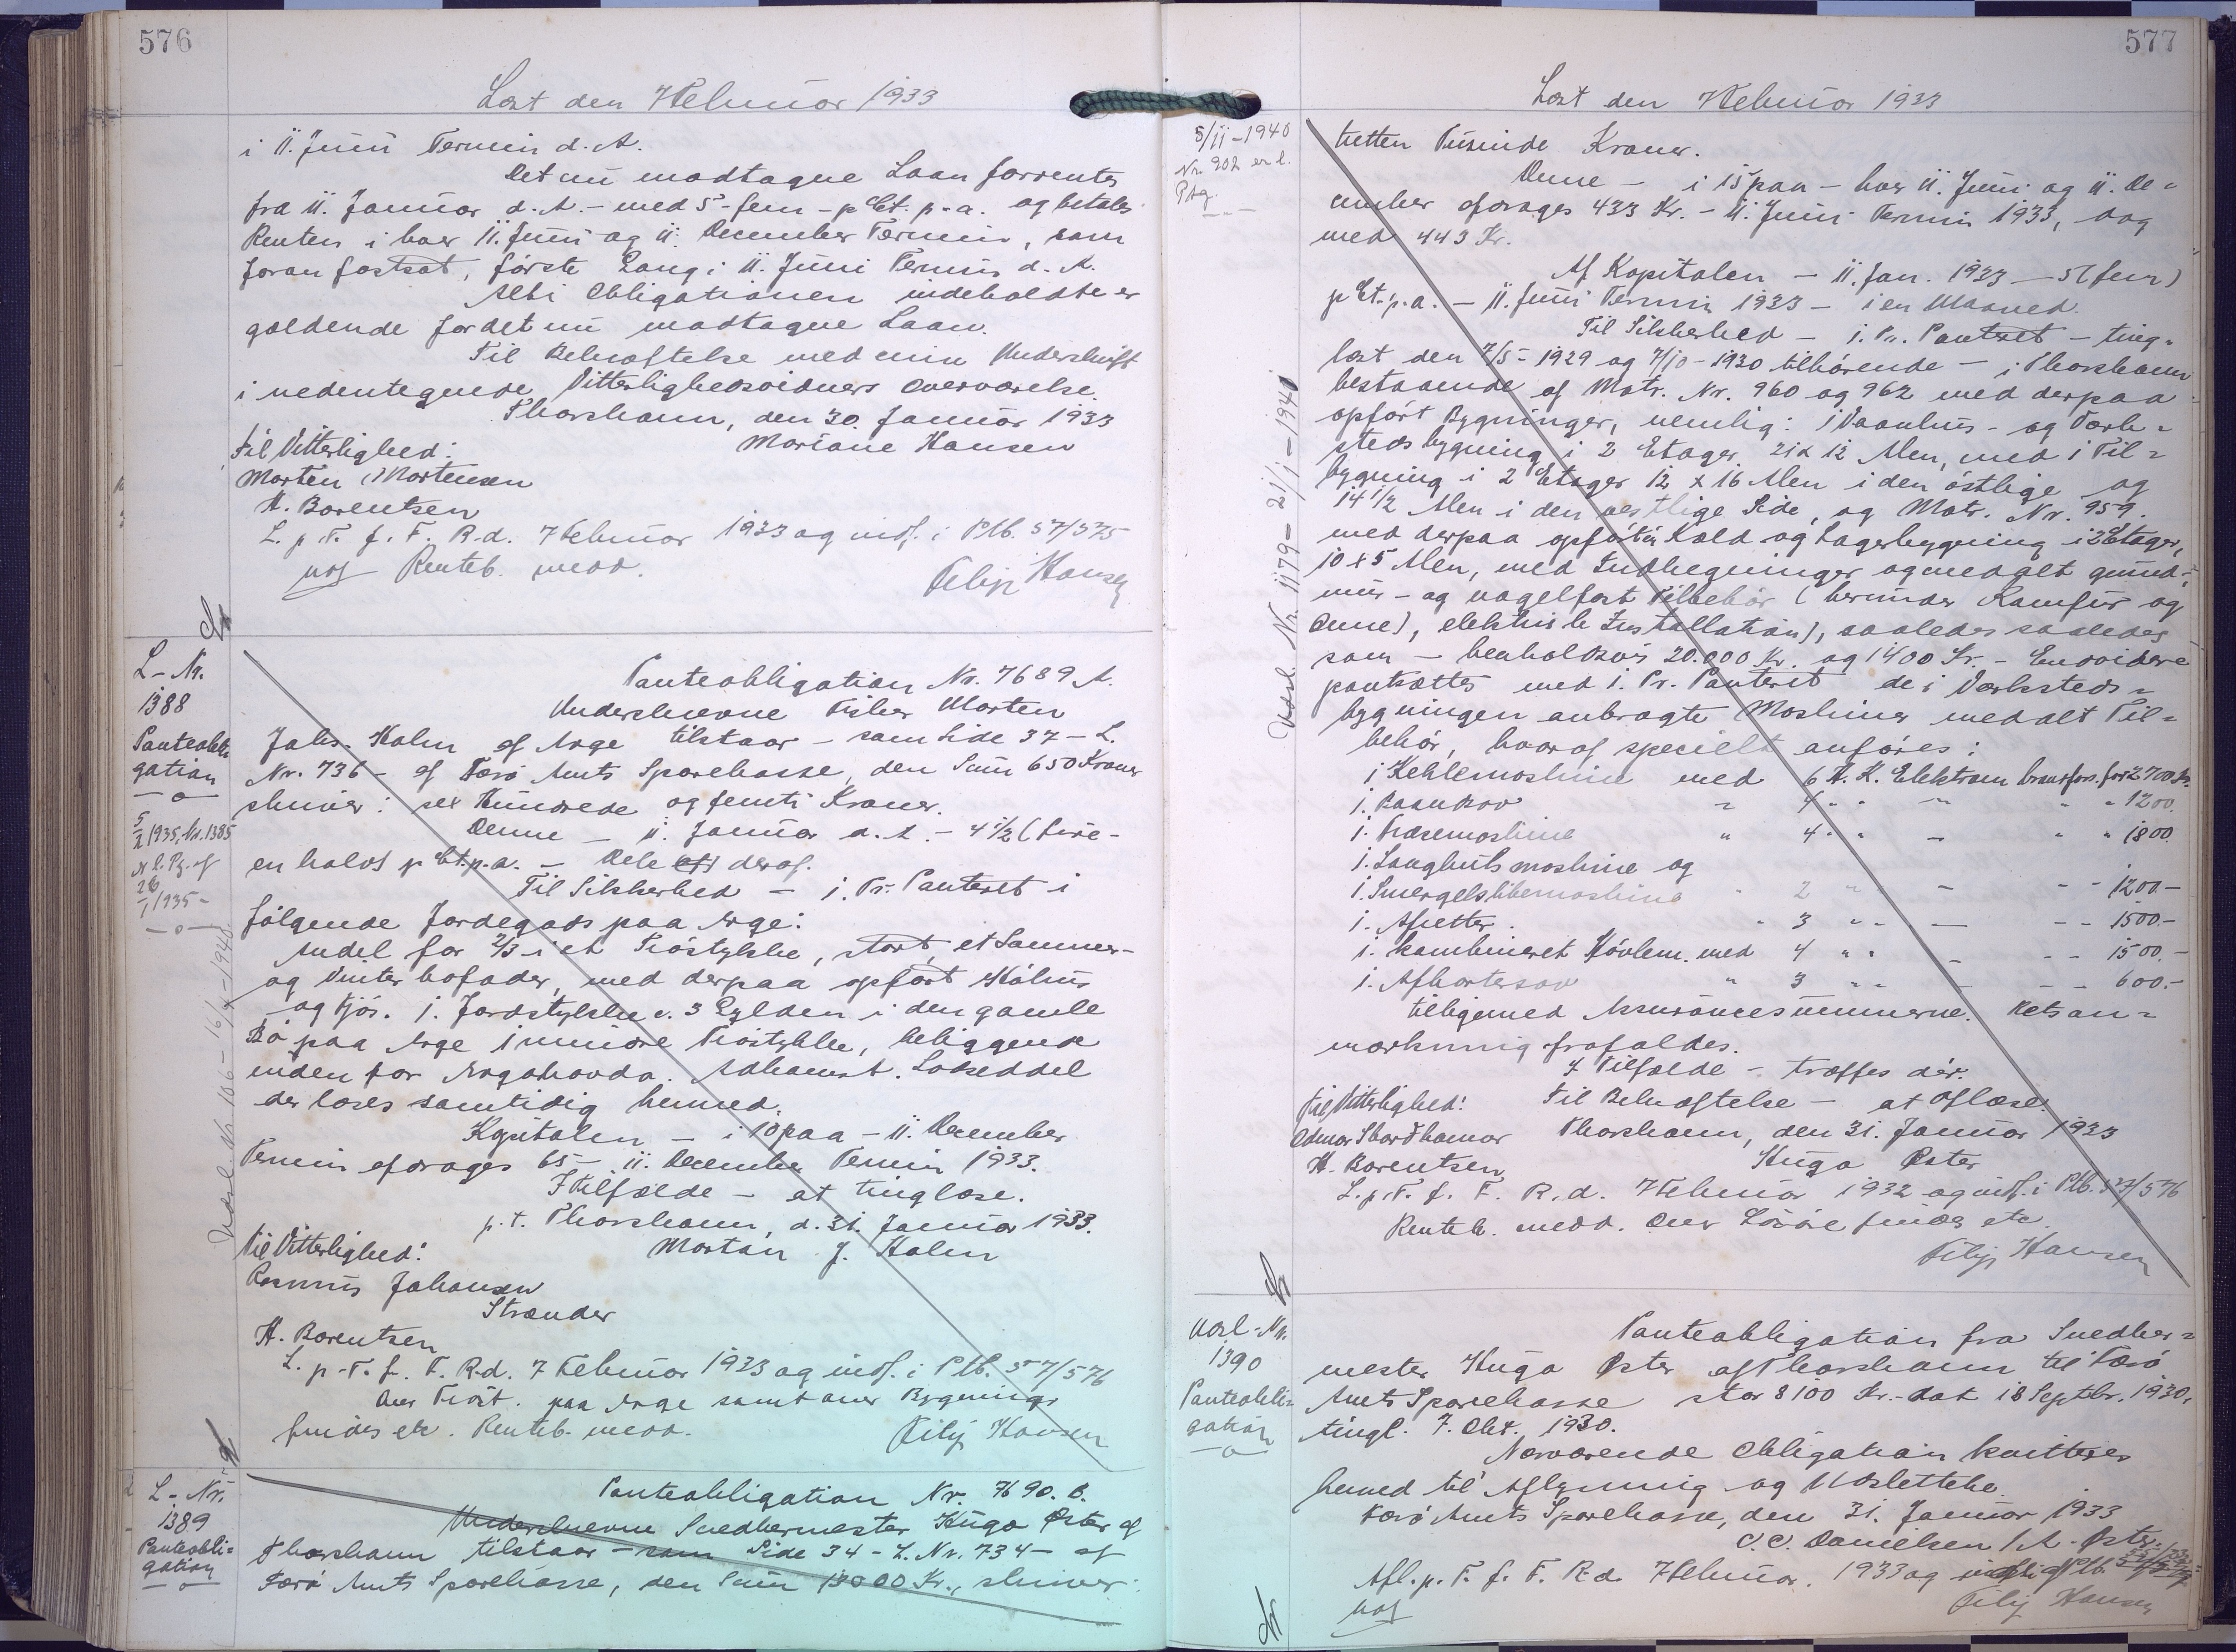 576
Læst den 7 Februar 1933
i 11. Juni Termin d. A.
Det nu modtagne Laan forrentes
fra 11. Januar d. A. - med 5 - fem - pCt. p. a. og betales
Renten i hver 11. Juni og 11. December Termin, som
foran fastsat, første Gang i 11. Juni Termin d. A.
Alt i Obligationen indeholdte er
gældende for det nu modtagne Laan.
Til Bekræftelse med min Underskrift
i nedentegnede Vitterlighedsvidners Overværelse.
Thorshavn, den 30. Januar 1933
Til Vitterlighed: Mariane Hansen
Morten Mortensen
H. Berentsen
L. p. T. f. F. R. d. 7 Februar 1933 og indf. i Ptb. 57/375
Renteb. medd.
Filip Hansen
L-Nr.
1388
Panteobli
gation
5/2 1935, Nr. 1385
26/1 1935 -
Panteobligation Nr. 7689 A.
Underskrevne Fisker Morten
Johs. Holm af Arge tilstaar - som Side 37 - L.
Nr. 736 - af Færø Amts Sparekasse, den Sum 650 Kroner
skriver: sex Hundrede og femti Kroner.
Denne - 11. Januar d. A. - 4 1/2 (fire-
en halv) pCt. p. a. - Dele deraf.
Til Sikkerhed - 1. Pr. Panteret i
følgende Jordegods paa Arge:
Andel for 2/3 i et Trøstykke, stort, et Sommer-
og Vinter hofoder, med derpaa opført Hølus
og Fjós. 1. Jordstykke c. 3 Gylden i den gamle
Bø paa Arge i nuiore Trøstykke, beliggende
inden for Argahovda. Adkomst. Løbseddel
der læses samtidig hermed.
Kapitalen - i 10 paa - 11. December
Termin afdrages 65 - 11. December Termin 1933.
I Tilfælde - at tinglæse.
p. t. Thorshavn, d. 31. Januar 1933.
Til Vitterlighed: Mortan J. Holm
Rasmus Johansen
Strender
H. Berentsen
L. p. T. f. F. R. d. 7 Februar 1933 og indf. i Ptb. 57/576
Over Trøst. paa Arge samt over Bygning
findes etc. Renteb. medd.
Filip Hansen
L-Nr.
1389
Panteobli=
gation
Panteobligation Nr. 7690. B.
Underskrevne Snedkermester Hugo Øster af
Thorshavn tilstaar - som Side 34 - L. Nr. 734 - af
Færø Amts Sparekasse, den Sum 13000 Kr., skriver:
577
Læst den 7 Februar 1933
5/11 - 1940
Nr. 202 er l.
Ptg.
Udsl. Nr. 1179 - 21/1 - 1940
tretten Tusinde Kroner.
Denne - i 15 paa - hver 11. Juni og 11. De=
cember afdrages 433 Kr. - 11. Juni Termin 1933, dog
med 443 Kr.
Af Kapitalen - 11. Jan. 1933 - 5 (fem)
pCt. p. a. - 11. Juni Termin 1933 - i en Maaned.
Til Sikkerhed - 1. Pr. Panteret - ting=
læst den 7/5 - 1929 og 7/10 - 1930 tilhørende - i Thorshavn
bestaaende af Matr. Nr. 960 og 962 med derpaa
opført Bygninger, nemlig: 1 Vaanhus- og Værk=
stedsbygning i 2 Etager 21 x 12 Alen, med 1 Til=
bygning i 2 Etager 12 x 16 Alen i den østlige og
14 1/2 Alen i den vestlige Side, og Matr. Nr. 959.
med derpaa opført en Stald og Lagerbygning i 2 Etager,
10 x 5 Alen, med Indhegninger og med alt grund-,
mur- og nagelfast Tilbehør (herunder Komfur og
Ovne), elektrisk Installation), saaledes saaledes
som - henholdsvis 20.000 Kr. og 1400 Kr. - Endvidere
pantsættes med 1. Pr. Panteret de i Værksteds=
bygningen anbragte Maskiner med alt Til=
behør, hvoraf specielt anføres:
1 Kehlemaskine med 6 H. K. Elektrom transfor. for 2700 Kr.
1. Baandsav " 4 " " - " " 1200.
1. Fræsemaskine " 4 " " - " " 1800
1. Langhulsmaskine og
1. Smergelslibemaskine " 2 " " - - - 1200.-
1. Afretter " 3 " " - - - 1500.-
1. kombineret Høvlem. med 4 " " - - - 1500.-
1. Afkortersav " 3 " " - - - 600.-
tilligemed Assurancesummerne. Retsan=
mærkning frafaldes.
I Tilfælde - træffes dér.
Til Vitterlighed: Til Bekræftelse - at aflæse.
Thorshavn, den 31. Januar 1933
H. Berentsen Hugo Øster
L. p. T. f. F. R. d. 7 Februar 1932 og indf. i Ptb. 57/576
Renteb. medd. Over Løsøre findes etc.
Filip Hansen
Udsl-Nr.
1390
Panteobli=
gation
Panteobligation fra Snedker=
mester Hugo Øster af Thorshavn til Færø
Amts Sparekasse stor 8100 Kr. - dat 18 Septbr. 1930,
tingl. 7. Okt. 1930.
Nærværende Obligation kvitteres
hermed til Aflysning og Udslettelse.
Færø Amts Sparekasse, den 31. Januar 1933
C. C. Danielsen / A. Øster.
Afl. p. T. f. F. R. d. 7 Februar. 1933 og
Filip Hansen